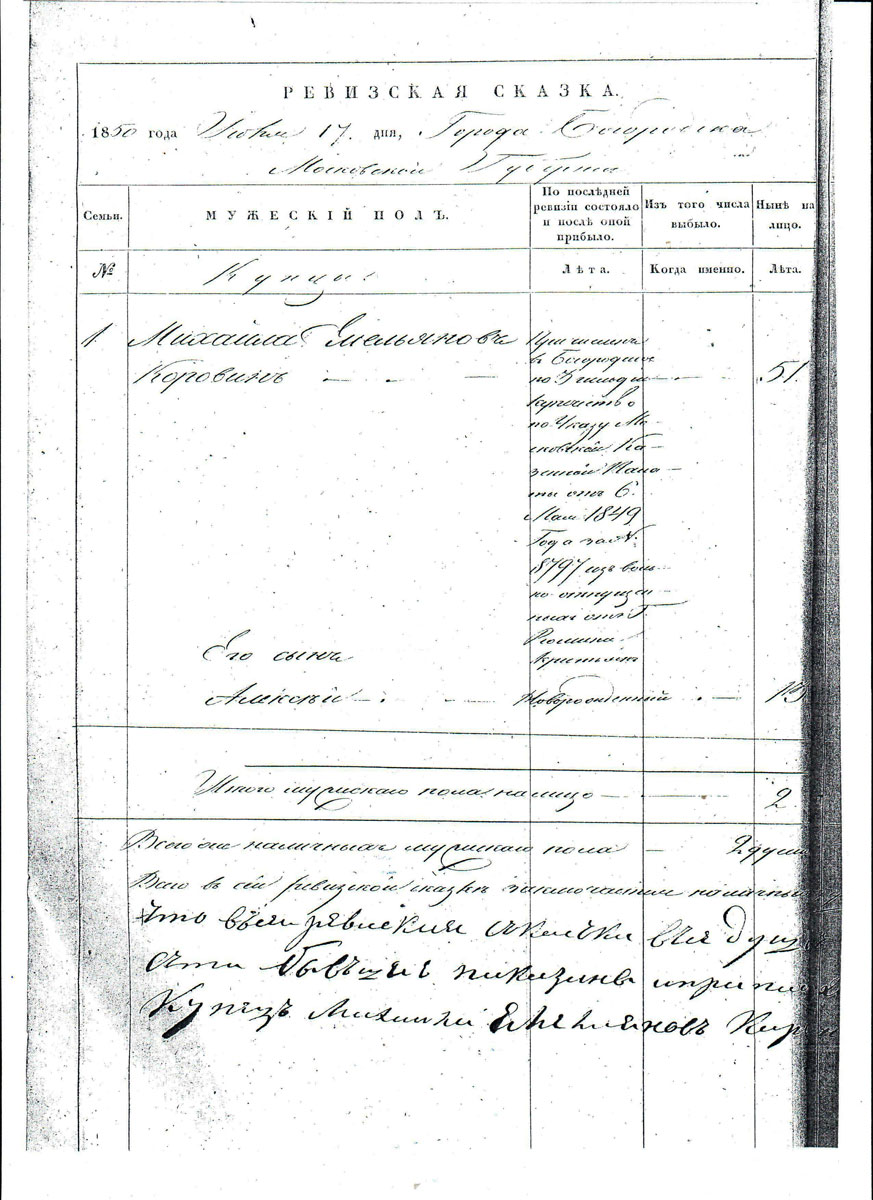 РЕВИЗСКАЯ СКАЗКА.
1850 года Июня 17 дня, Города Богородска
Московской Губернии
Семьи.
МУЖЕСКІЙ ПОЛЪ.
По послѣдней
ревизіи состояло
и послѣ оной
прибыло.
Изъ того числа
выбыло.
Нынѣ на
лицо.
№
Купцы.
Лѣта.
Когда именно.
Лѣта.
1. Михайла Емельяновъ
Коровинъ
в Богородское
по 3 гильдіи
купечество
по Указу Мо-
сковской Ка-
зенной Пала-
ты отъ 6
Мая 1849
Года за №
8797 изъ воль-
но отпущен-
ныхъ отъ Г.
Рюмина
крестьянъ
51.
Его сынъ
Алексѣй
Новорожденный
Итого мужескаго пола на лицо
2
Всего наличныхъ мужскаго пола — 2 души
Всего в сей ревизской сказкѣ заключается наличныхъ
Что всей ревиской скаски все душ
бывшей
Купецъ Михайла Емельяновъ